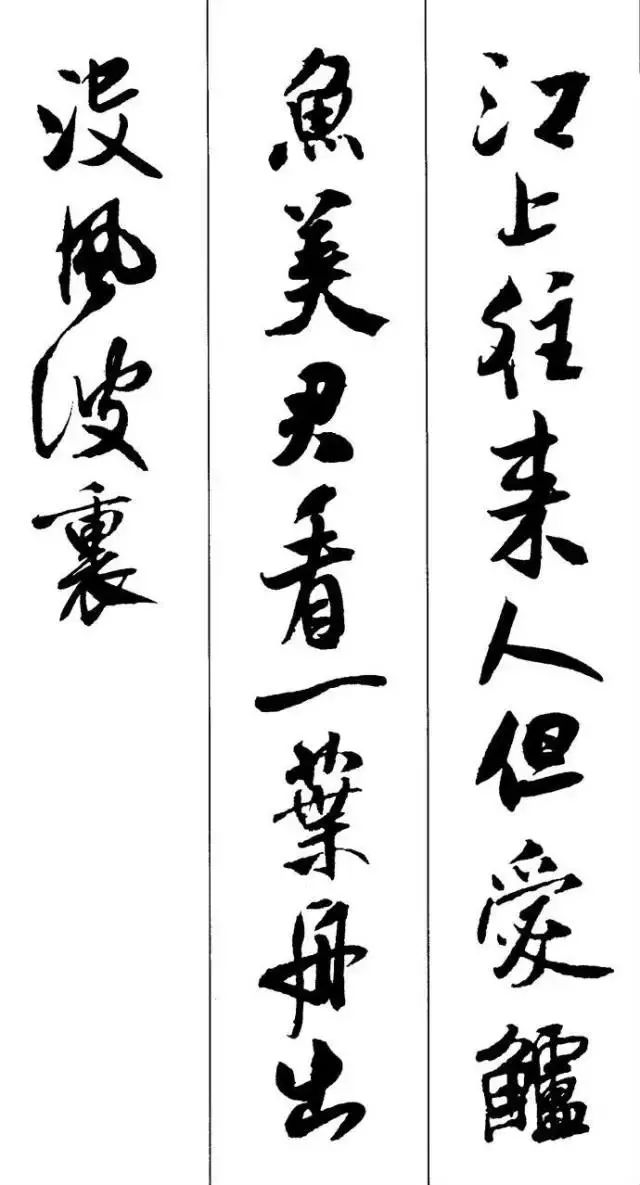 江上往来人但愛鱸
魚美君看一葉舟出
没風波裏